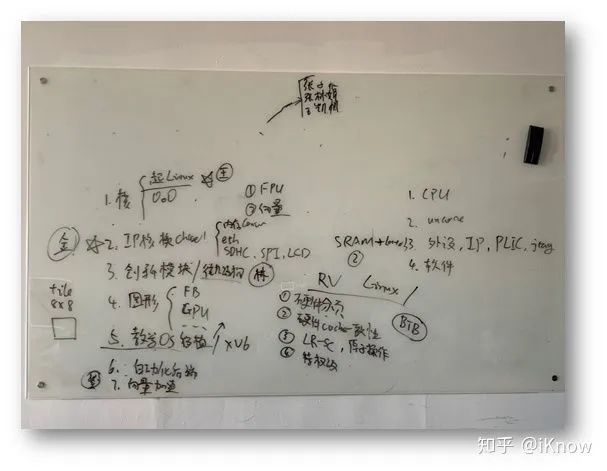 张
张林
王
1. 核 { 起Linux ☆ 王
O.O
① FPU
② 向量
金 ☆ 2. IP核
eth
SDHC, SPI, LCD
3. 创新模块 / 微结构 林
4. 图形 { FB
GPU
---
5. 教学OS / xv6
6. 自动化后端
7. 向量加速
tile
8x8
1. CPU
2. uncore
SRAM
②
3. 外设, IP, PLIC, jtag
4. 软件
RV Linux
① 硬件分页
② 硬件cache一致性
③ LR-SC, 原子操作
④ 特权级
BTB
知乎 @iKnow